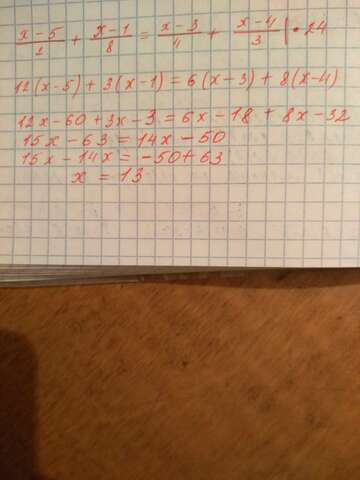 x-5/2 + x-1/8 = x-3/4 + x-4/3 | • 24
12(x-5) + 3(x-1) = 6(x-3) + 8(x-4)
12x-60+3x-3 = 6x-18+8x-32
15x-63 = 14x-50
15x-14x = -50+63
x = 13